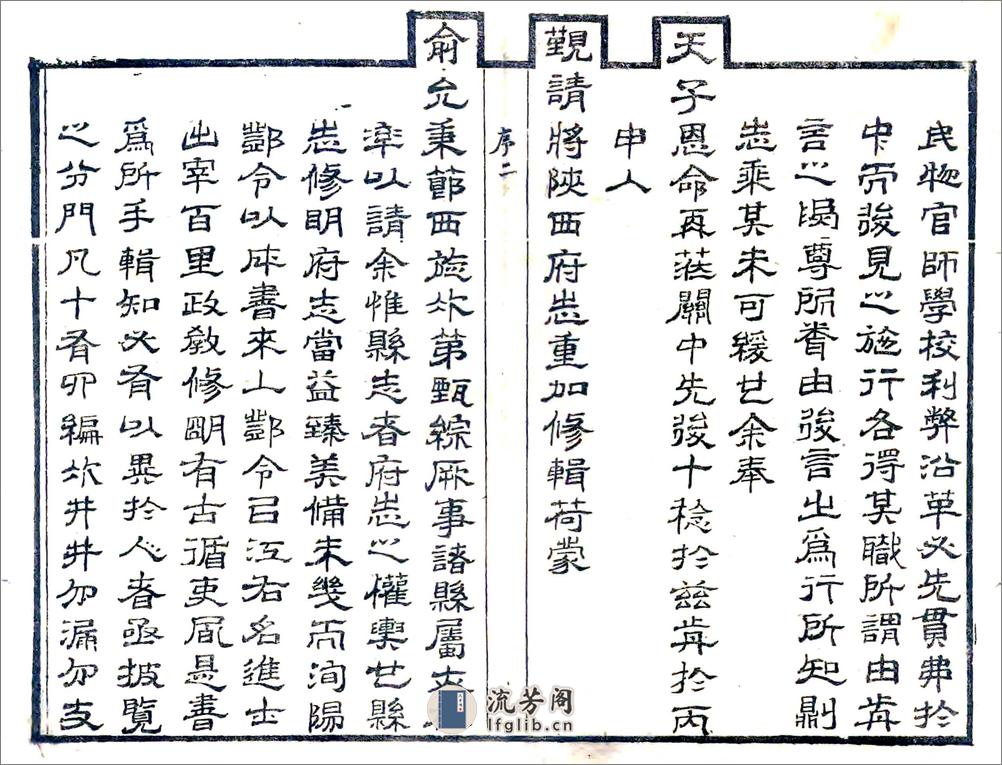 民物官師學校利弊沿革必先貫弗於
中而後見之施行各得其職所謂由前
言之尊所聞由後言之為行所知則
志乘其未可緩也余奉
天子恩命再莅關中先後十稔於茲前於丙
申入
覲請將陝西府志重加修輯荷蒙
序二
俞允秉節西旋次第甄綜厥事諸縣屬亦
率以請余惟縣志者府志之權輿也縣
志修明府志當益臻美備未幾而洵陽
鄧令以成書來上鄧令㠯江右名進士
出宰百里政敎修明有古循吏風是書
爲所手輯知必有以異於人者亟披覽
之分門凡十有四編次井井勿漏勿支
流芳阁
lfglib.cn